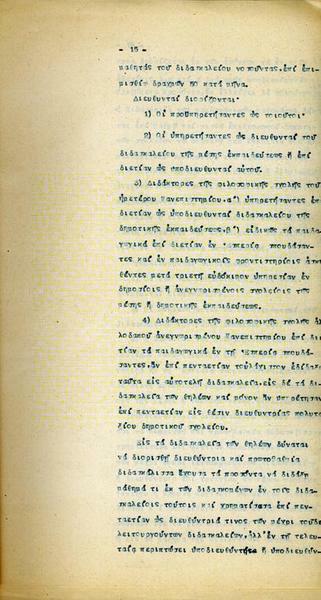 - 15 -
μαθητάς τοῦ διδασκαλείου νοσοῦντας, ἐπί ἐπι
μισθίῳ δραχμῶν 50 κατά μῆνα.
Διευθυνταί διορίζονται·
1) Οἱ προϋπηρετήσαντες ὡς τοιοῦτοι·
2) Οἱ ὑπηρετήσαντες ὡς διευθυνταί τοῦ
διδασκαλείου τῆς μέσης ἐκπαιδεύσεως ἤ ἐπί
διετίαν ὡς ὑποδιευθυνταί αὐτοῦ.
3) Διδάκτορες τῆς φιλοσοφικῆς σχολῆς τοῦ
ἡμετέρου Πανεπιστημίου. α') ὑπηρετήσαντες ἐπί
διετίαν ὡς ὑποδιευθυνταί διδασκαλείου τῆς
δημοτικῆς ἐκπαιδεύσεως. β') εἰδικῶς τά παιδα
γωγικά ἐπί διετίαν ἐν Ἑσπερίᾳ σπουδάσαν
τες καί ἐν παιδαγωγικοῖς φροντιστηρίοις
θέντες μετά τριετῆ εὐδόκιμον ὑπηρεσίαν ἐν
δημοσίοις ἤ ἀνεγνωρισμένοις σχολείοις τῆς
μέσης ἤ δημοτικῆς ἐκπαιδεύσεως.
4) Διδάκτορες τῆς φιλοσοφικῆς σχολῆς ἀλ
λοδαποῦ ἀνεγνωρισμένου Πανεπιστημίου ἐπί διε
τίαν τά παιδαγωγικά ἐν τῇ Ἑσπερίᾳ σπουδάσαν
τες, ἄν ἐπί πενταετίαν τοὐλάχιστον ἐδίδαξαν
ταῦτα εἰς αὐτοτελῆ διδασκαλεῖα, εἰς δέ τά δι
δασκαλεῖα τῶν θηλέων καί μόνον ἄν ὑπηρέτησαν
ἐπί πενταετίαν εἰς θέσιν διευθυντρίας πολυτα
ξίου δημοτικοῦ σχολείου.
Εἰς τά διδασκαλεῖα τῶν θηλέων δύναται
νά διορισθῇ διευθύντρια καί πρωτοβαθμία
διδασκάλισσα ἔχουσα τά προσόντα νά διδάξῃ
μάθημά τι ἐκ τῶν διδασκομένων ἐν τοῖς διδα
σκαλείοις τούτοις καί χρηματίσασα ἐπί πεν
ταετίαν ὡς διευθύντριά τινος τῶν μέχρι τοῦδε
λειτουργούντων διδασκαλείων, ἀλλ' ἐν τῇ τελευ
ταίᾳ περιπτώσει ὑποδιευθυντής ἤ ὑποδιευθύν-